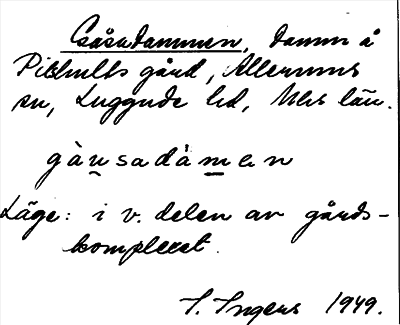 Gåsadammen, damm å
Pilshults gård, Allerums
sn, Luggude hd, Mhs län.
gå̀u̠sadåm̠en
Läge: i v. delen av gårds-
komplexet.
I. Ingers 1949.